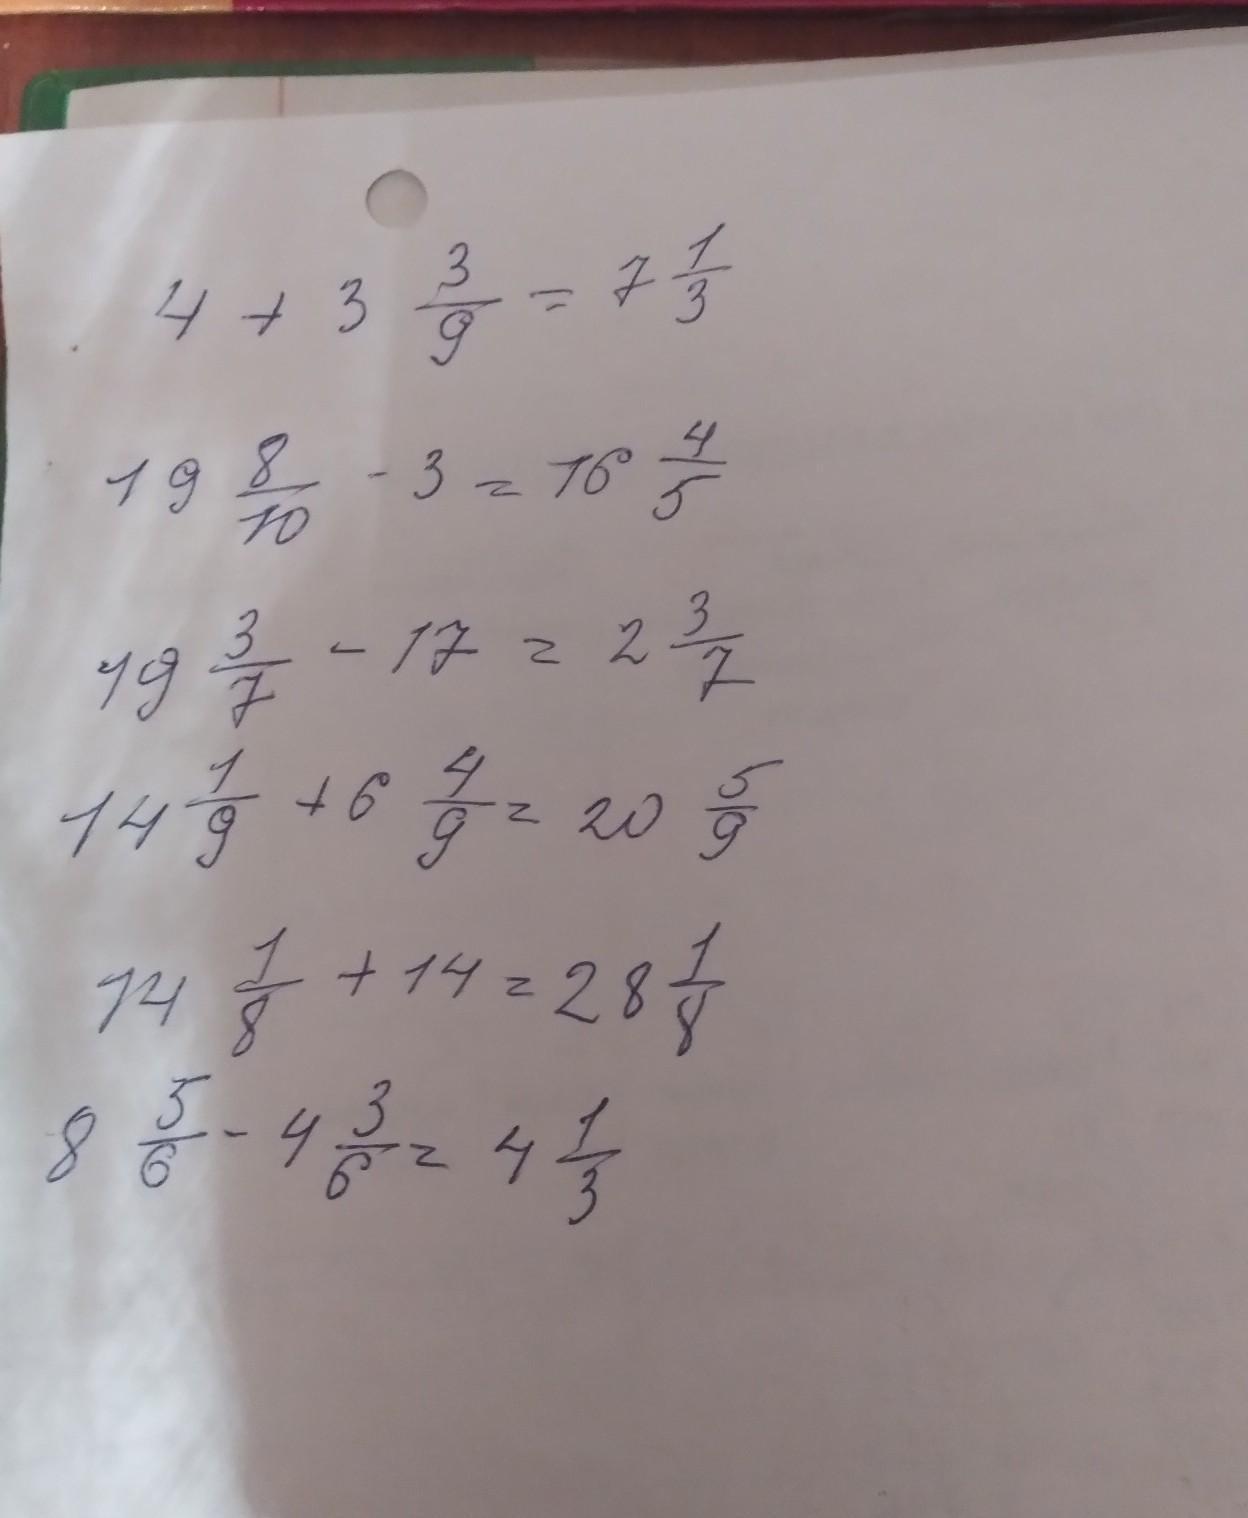 4 + 3 3/9 = 7 1/3
19 8/10 - 3 = 16 4/5
19 3/7 - 17 = 2 3/7
14 1/9 + 6 4/9 = 20 5/9
14 1/8 + 14 = 28 1/8
8 5/6 - 4 3/6 = 4 1/3